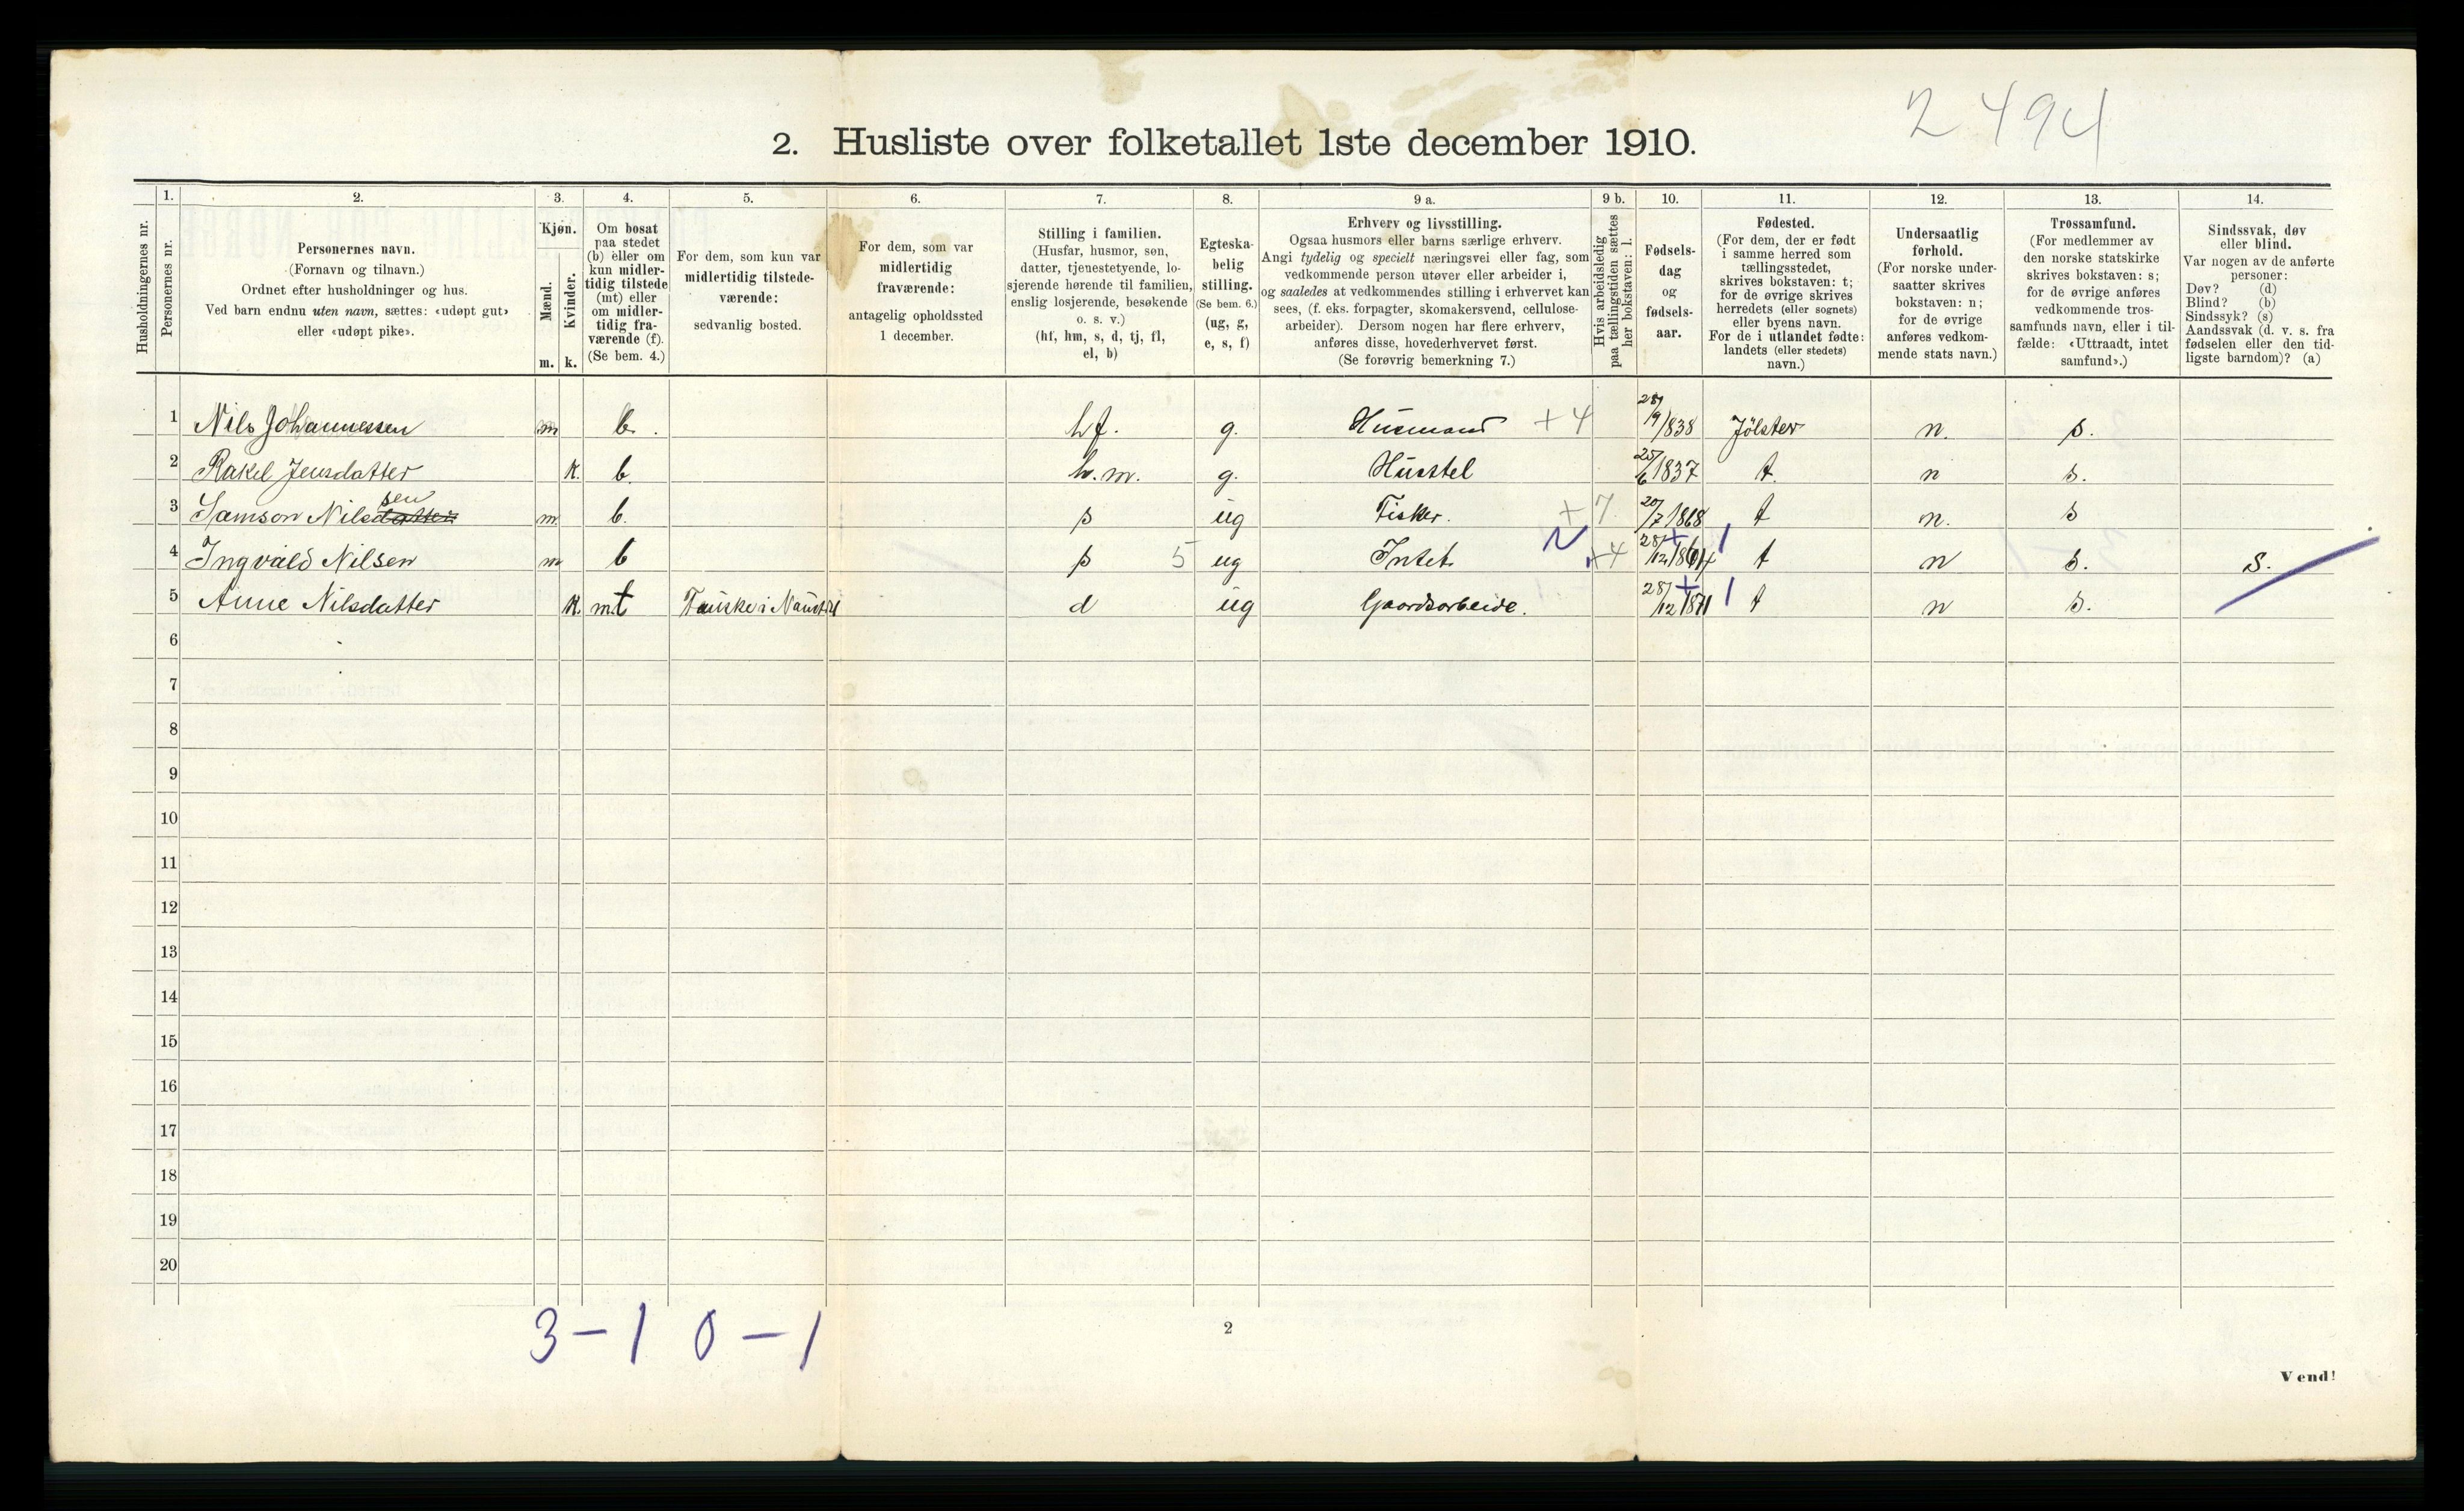 2 494
2. Husliste over folketallet 1ste december 1910.
Husholdningernes nr.
1.
Personernes nr.
2.
Personernes navn.
(Fornavn og tilnavn.)
Ordnet efter husholdninger og hus.
Ved barn endnu uten navn, sættes: «udøpt gut»
eller «udøpt pike».
3.
Kjøn.
Mænd.
Kvinder.
m. k.
4.
Om bosat
paa stedet
(b) eller om
kun midler-
tidig tilstede
(mt) eller
om midler-
tidig fra-
værende (f).
(Se bem. 4.)
5.
For dem, som kun var
midlertidig tilstede-
værende:
sedvanlig bosted.
6.
For dem, som var
midlertidig
fraværende:
antagelig opholdssted
1 december.
7.
Stilling i familien.
(Husfar, husmor, søn,
datter, tjenestetyende, lo-
sjerende hørende til familien,
enslig losjerende, besøkende
o. s. v.)
(hf, hm, s, d, tj, fl,
el, b)
8.
Egteska-
belig
stilling.
(Se bem. 6.)
(ug, g,
e, s, f)
9 a.
Erhverv og livsstilling.
Ogsaa husmors eller barns særlige erhverv.
Angi tydelig og specielt næringsvei eller fag, som
vedkommende person utøver eller arbeider i,
og saaledes at vedkommendes stilling i erhvervet kan
sees, (f. eks. forpagter, skomakersvend, cellulose-
arbeider). Dersom nogen har flere erhverv,
anføres disse, hovederhvervet først.
(Se forøvrig bemerkning 7.)
9 b.
Hvis arbeidsledig
paa tællingstiden sættes
her bokstaven: l.
10.
Fødsels-
dag
og
fødsels-
aar.
11.
Fødested.
(For dem, der er født
i samme herred som
tællingsstedet,
skrives bokstaven: t;
for de øvrige skrives
herredets (eller sognets)
eller byens navn.
For de i utlandet fødte:
landets (eller stedets)
navn.)
12.
Undersaatlig
forhold.
(For norske under-
saatter skrives
bokstaven: n;
for de øvrige
anføres vedkom-
mende stats navn.)
13.
Trossamfund.
(For medlemmer av
den norske statskirke
skrives bokstaven: s;
for de øvrige anføres
vedkommende tros-
samfunds navn, eller i til-
fælde: «Uttraadt, intet
samfund».)
14.
Sindssvak, døv
eller blind.
Var nogen av de anførte
personer:
Døv? (d)
Blind? (b)
Sindssyk? (s)
Aandssvak (d. v. s. fra
fødselen eller den tid-
ligste barndom)? (a)
1 Nils Johannessen m b. hf. g. Husmand +4 28/9 1838 Jölster n. s.
2 Rakel Jensdatter K. b. h.m. g. Husstel 25/6 1837 t. n s.
3 Samson Nilsdattersen m. b. s ug Fisker. +7 20/7 1868 t n. s
4 Ingvald Nilsen m b s 5 ug Intet +4 28/12 1864 t n s. S.
5 Anne Nilsdatter K. mt Fauske i Naustdl d ug Gaardsarbeide. 28/12 1871 t n s.
6
7
8
9
10
11
12
13
14
15
16
17
18
19
20
3 – 1 0 – 1
2
Vend!